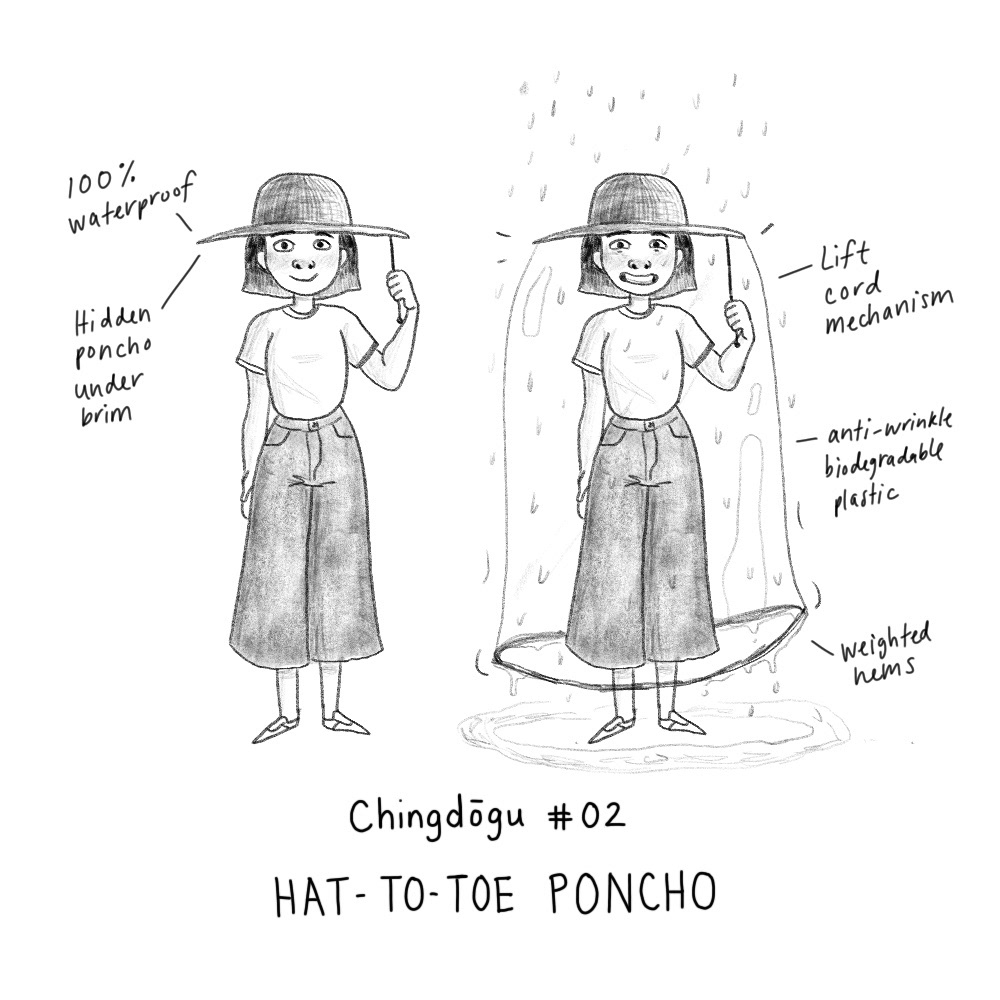 100%
waterproof
Hidden
poncho
under
brim
Lift
cord
mechanism
anti-wrinkle
biodegradable
plastic
weighted
hems
Chingdōgu #02
HAT-TO-TOE PONCHO